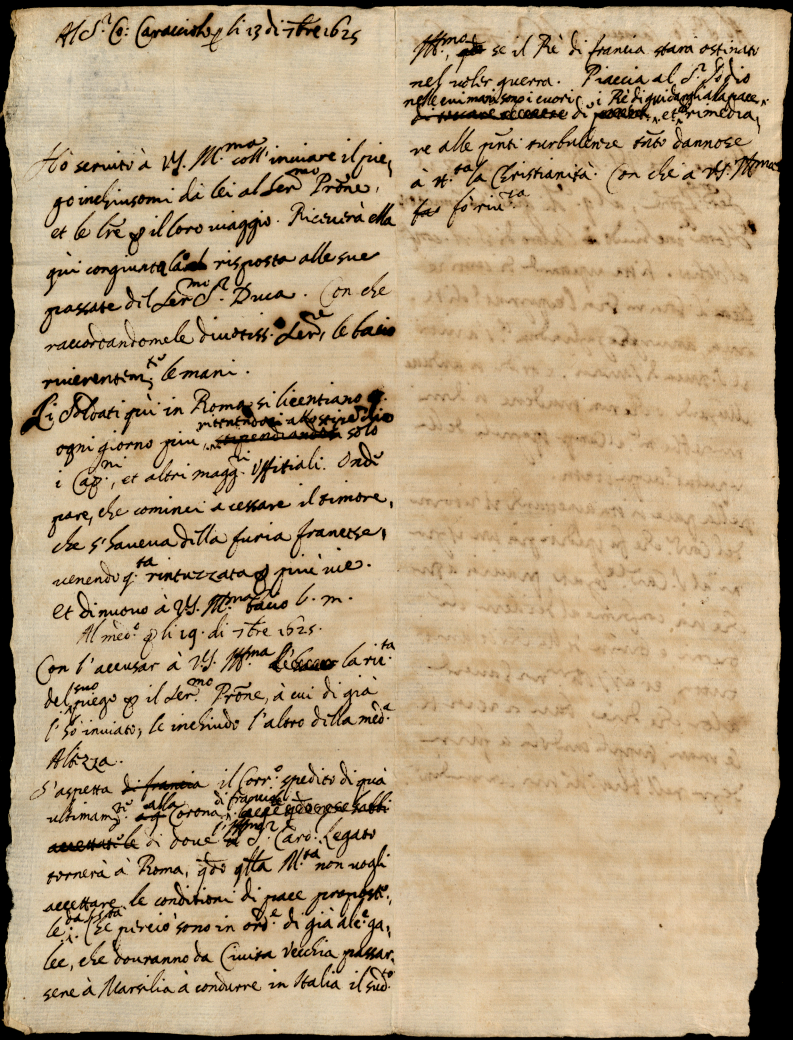 Al S.r Co: Caracciolo p li 13 di 7bre 1625
Hò servito à VS. Ill.ma coll'inviare il pie,
go inchiusomi da lei al Ser.mo Prõne,
et le lre p il loro viaggio. Riceverà ella
quì congiunta la risposta alle sue
passate del Ser.mo S.r Duca. Con che
raccordandomele divotiss.o Ser.re, le bacio
riverentem.te le mani.
Li Soldati quì in Roma si licentiano
ritenendosi allo stipendio
ogni giorno piu, stipendiandosi solo
i Cap.ni, et altri magg.ri Uffitiali. Onde
pare, che cominci a cessare il timore,
che s'haveva della furia franzese,
venendo q.ta rintuzzata p più vie.
Et di nuovo à VS. Ill.ma bacio b. m.
Al med.o p li 19. di 7bre 1625.
Con l'accusar à VS. Ill.ma la ric.ta
del suo piego p il Ser.mo Prõne, à cui di già
l'hò inviato, le inchiudo l'altro della med.a
Altezza.
S'aspetta di francia il Corr.o spedito di quà
ultimam.te alla Corona di francia,
di dove l'Ill.mo S.r Card. Legato
tornerà à Roma, qdo qlla M.tà non vogli
accettare le conditioni di pace proposte,
le da S. S.tà Che perciò sono in ord.e di già al.e ga,
lee, che dovranno da Civita Vecchia passar,
sene à Marsilia à condurre in Italia il sud.to
Ill.mo, se il Rè di francia starà ostinato
nel voler guerra. Piaccia al S.r Iddio
nelle cui mani sono i cuori i Rè di guidargli alla pace,
di et rimedia,
re alle pñti turbulenze tñto dannose
à tt.a la Christianità. Con che à VS. Ill.ma
fò riv.za